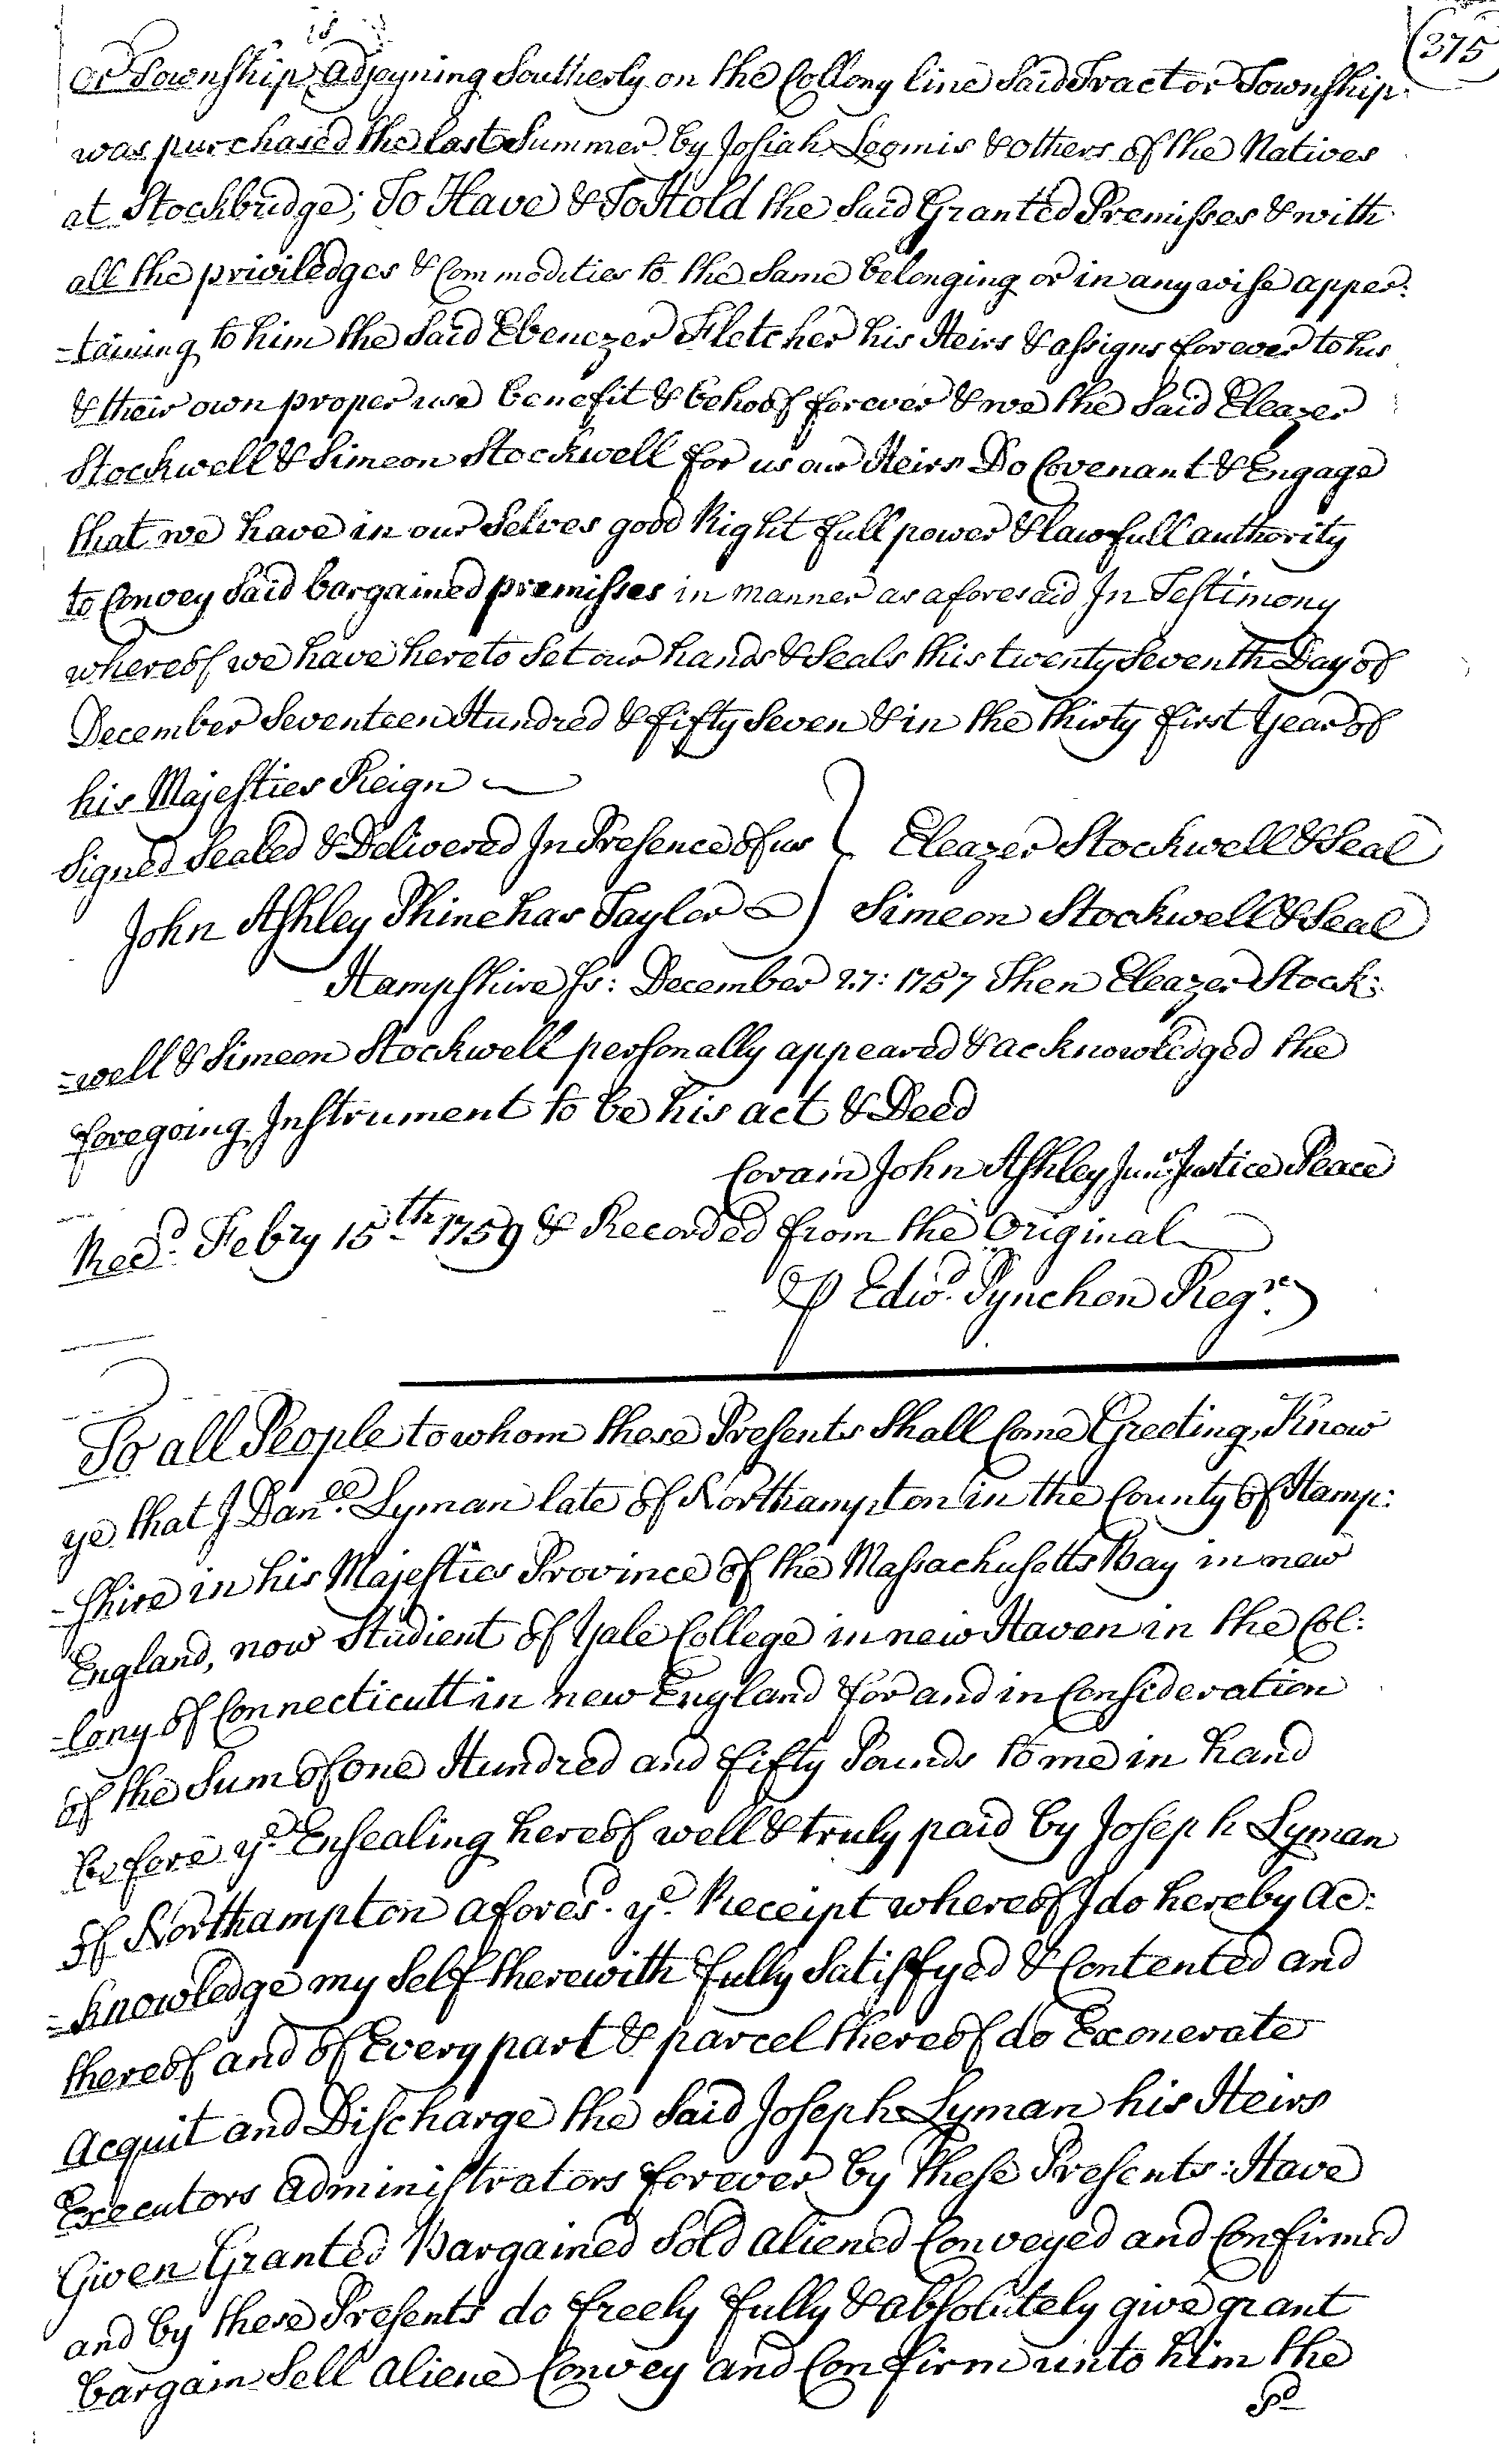 (375)
is
or Township adjoyning Southerly on the Collony line Said Tract or Township
was purchased the last Summer by Josiah Loomis & others of the Natives
at Stockbridge; To Have & To Hold the Said Granted Premisses & with
all the priviledges & Commodities to the Same belonging or in any wise apper:
=taining to him the Said Ebenezer Fletcher his Heirs & assigns forever to his
& their own proper use benefit & behoof forever & we the Said Eleazer
Stockwell & Simeon Stockwell for us our Heirs Do Covenant & Engage
that we have in our Selves good Right full power & lawfull authority
to Convey Said bargained premisses in manner as aforesaid In Testimony
whereof we have hereto Set our hands & Seals this twenty Seventh Day of
December Seventeen Hundred & fifty Seven & in the thirty first Year of
his Majesties Reign
Signed Sealed & Delivered In Presence of us } Eleazer Stockwell & Seal
John Ashley Phinehas Taylor ) Simeon Stockwell & Seal
Hampshire Ss: December 27: 1757 Then Eleazer Stock:
=well & Simeon Stockwell personally appeared & acknowledged the
foregoing Instrument to be his act & Deed
Coram John Ashley Junr Justice Peace
Recd. Febry 15th 1759 & Recorded from the Original
P Edwd. Pynchon Regr.
To all People to whom these Presents Shall Come Greeting, Know
ye that I Danll. Lyman late of Northampton in the County of Hamp:
=shire in his Majesties Province of the Massachusetts Bay in new
England, now Studient of Yale College in new Haven in the Col:
=lony of Connecticutt in new England for and in Consideration
of the Sum of one Hundred and fifty Pounds to me in hand
before ye. Ensealing hereof well & truly paid by Joseph Lyman
of Northampton aforesd. ye. Receipt whereof I do hereby Ac:
=knowledge my Self therewith fully Satisfyed & Contented and
thereof and of Every part & parcel thereof do Exonerate
Acquit and Discharge the Said Joseph Lyman his Heirs
Executors Administrators forever by these Presents: Have
Given Granted Bargained Sold aliened Conveyed and Confirmed
and by these Presents do freely fully & absolutely give grant
bargain Sell aliene Convey and Confirm unto him the
Sd